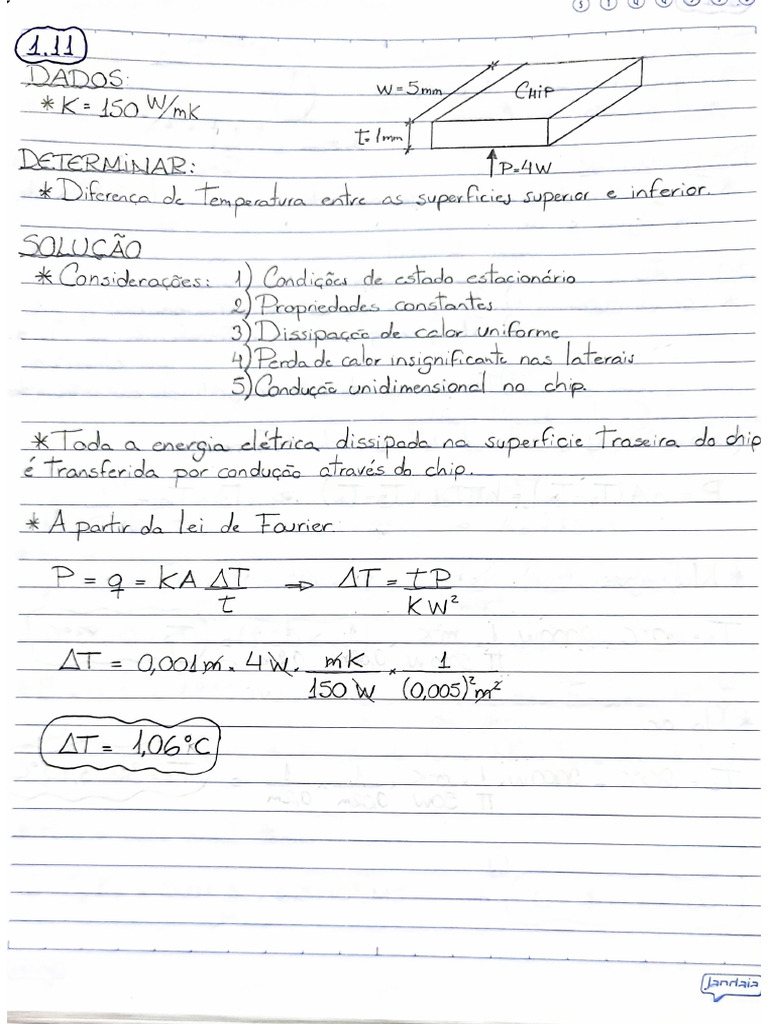 1.11
DADOS:
* K = 150 W/mK
W = 5mm
CHIP
t=1mm
P=4W
DETERMINAR:
* Diferença de temperatura entre as superfícies superior e inferior.
SOLUÇÃO
* Considerações: 1) Condições de estado estacionário
2) Propriedades constantes
3) Dissipação de calor uniforme
4) Perda de calor insignificante nas laterais
5) Condução unidimensional no chip.
* Toda a energia elétrica dissipada na superfície traseira do chip
é transferida por condução através do chip.
* A partir da lei de Fourier:
P = q = KA ΔT/t ⇒ ΔT = tP/KW²
ΔT = 0,001m . 4W . mK/150 W × 1/(0,005)²m²
ΔT = 1,06°C
Jandaia